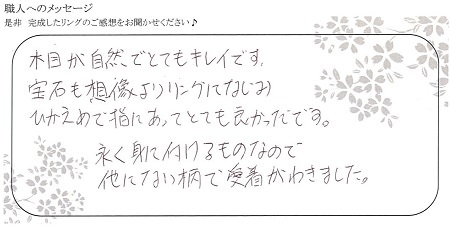 職人へのメッセージ
是非 完成したリングのご感想をお聞かせください♪
木目が自然でとてもキレイです。
宝石も想像よりリングになじみ
ひかえめで指にあってとても良かったです。
永く身に付けるものなので
他にない柄で愛着がわきました。